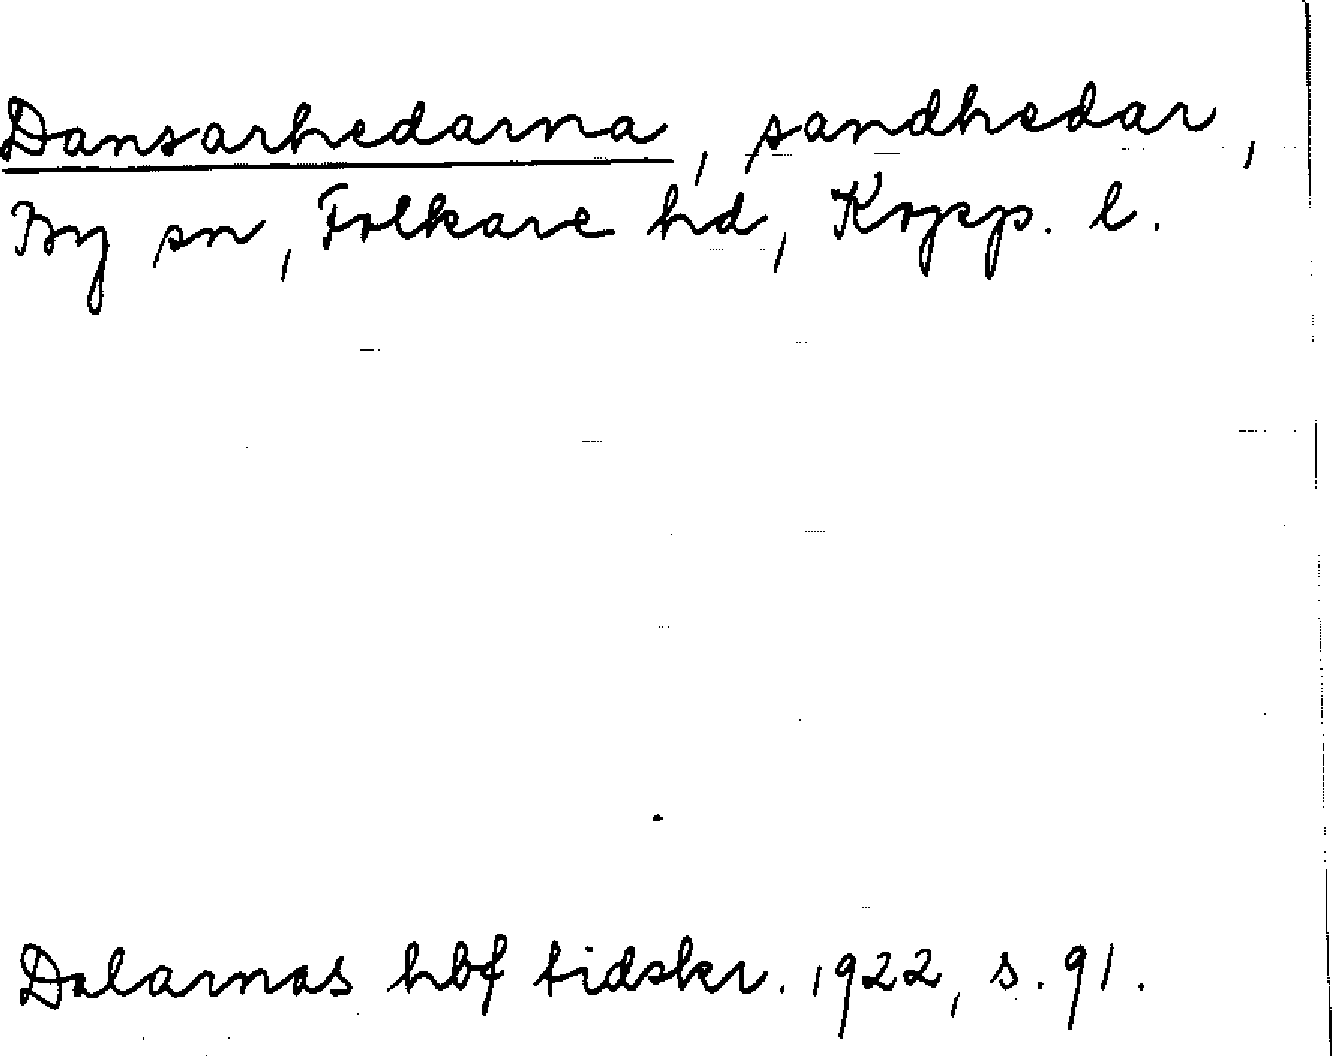 Dansarhedarna, sandhedar,
By sn, Folkare hd, Kopp. l.
Dalarnas hbf tidskr. 1922, s. 91.